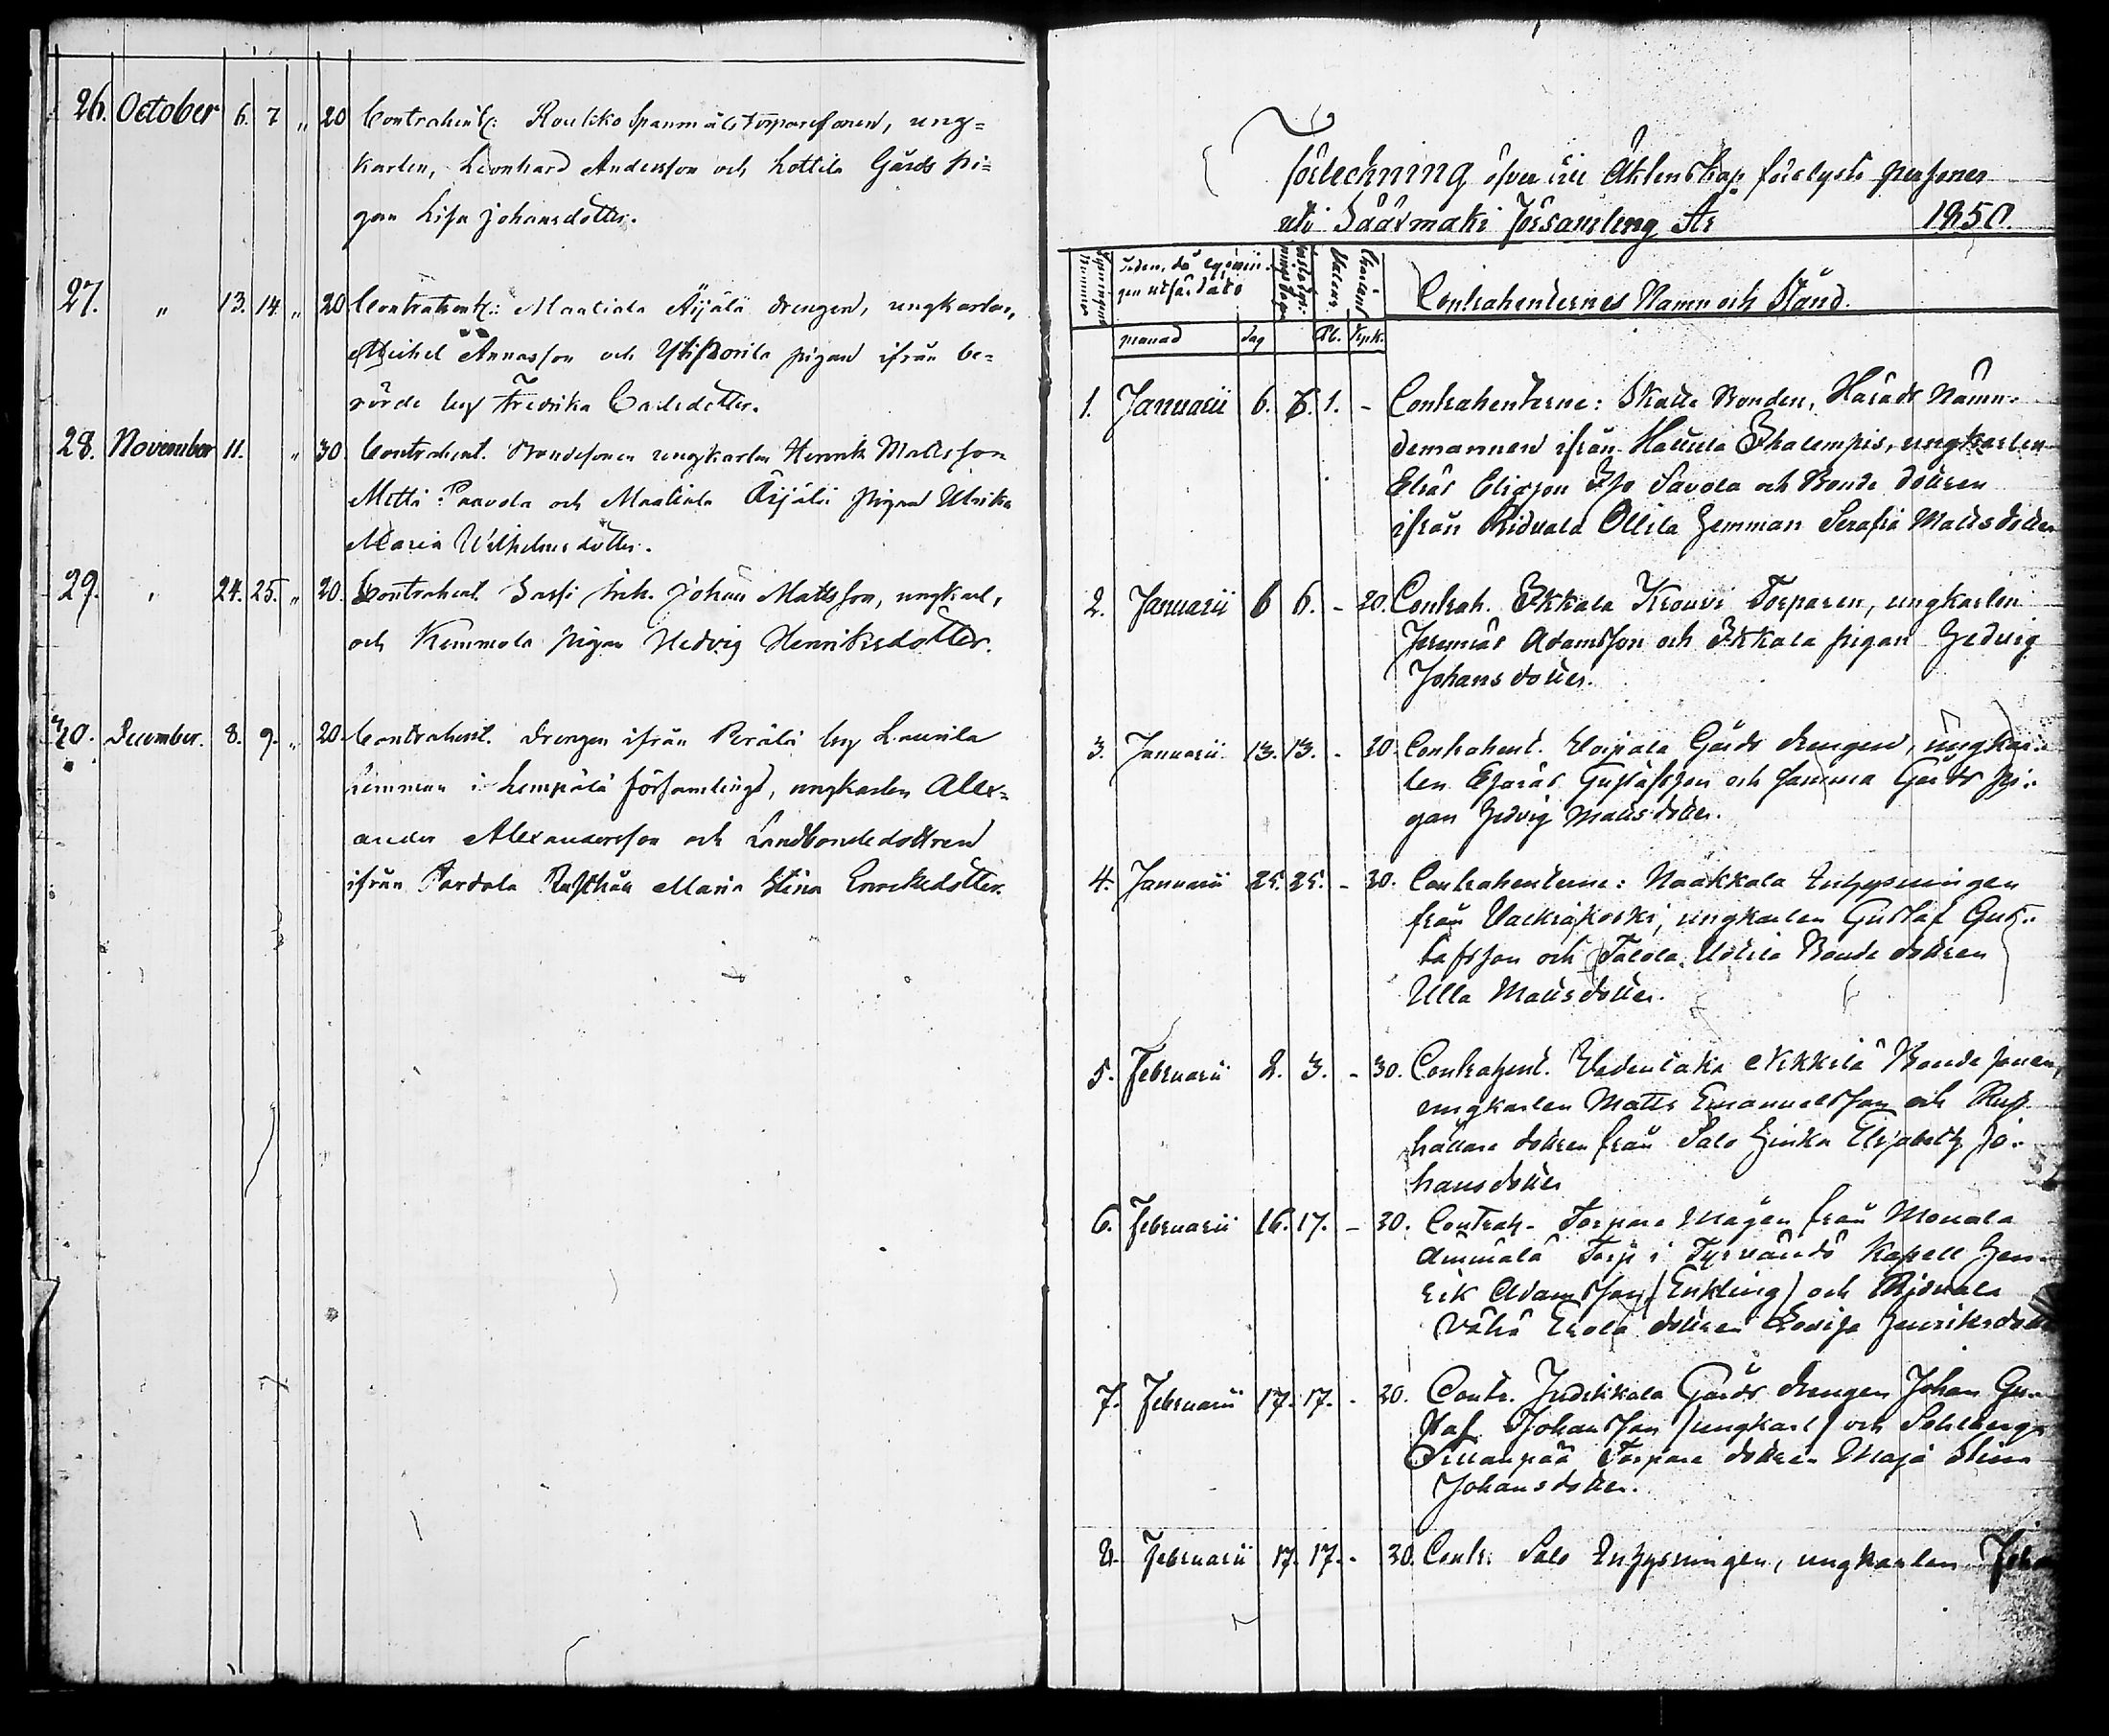 26. October 6. 7 „ 20 Contrahent: Roukko Spanmålstorparesonen, ung=
karlen, Leonhard Andersson och Lottila Gårds pi=
gan Lisa Johansdotter.
27. „ 13. 14. „ 20 Contrahent: Maatiala Äijälä drengen, ungkarlen,
Michel Annasson och pigan ifrån be=
rörde by Fredrika Carlsdotter.
28. November 11. „ 30 Contrahent. Bondesonen ungkarlen Henrik Mattsson
Metti Paavola och Maatiala Äijälä pigan Ulrika
Maria Wilhelmsdotter.
29. „ 24. 25. „ 20. Contrahent. Inh. Johan Mattsson, ungkarl,
och Kemmola pigan Hedvig Henriksdotter.
30. December. 8. 9. „ 20. Contrahent. drengen ifrån Perälä by Laurila
hemman i Lempälä församlingd, ungkarlen Alex=
ander Alexandersson och Landbondedottren
ifrån Maria Stina Enriksdotter.
Förteckning öfver till Äktenskap förelyste personer
uti Sääxmäki församling År 1850.
Tiden, då lysnin-
gen utfärdats
Contrahenternes Namn och Stånd.
månad dag Rb. Kpk.
1. Januarii 6. 6. 1. - Contrahenterne: Skatte Bonden, Härads Nämn-
demannen ifrån ungkarlen
Elias Eliasson Iso Savola och Bonde dottren
ifrån Ridvala Ollila Hemman Serafia Mattsdotter
2. Januarii 6 6. - 20. Contrah. Ikkala Krouvi Torparen, ungkarlen
Jeremias Adamsson och Ikkala pigan Hedvig
Johansdotter.
3. Januarii 13. 13. - 20. Contrahent. Voipala Gårds drengen, ungkar-
len Esaias Gustafsson och Gårds pi-
gan Hedvig Mattsdotter.
4. Januarii 25. 25. - 30. Contrahenterne: Naakkala Inhysningen
från Valkiakoski, ungkarlen Gustaf Gus-
tafsson och Bonde dottren
Ulla Mattsdotter.
5. Februarii 2. 3. - 30. Contrahent. Vedentaka Nikkilä Bonde sonen,
ungkarlen Matts Emanuelsson och Rust
hållare dottren från Salo Elisabeth Jo-
hansdotter
6. Februarii 16. 17. - 30. Contrah. Torpare Mågen från
Torp i Tyrvändö Kapell Hen-
rik Adamsson (Enkling) och Ridvala
Vähä Erola dottren Lovisa Henriksdotter
7. Februarii 17. 17. - 20. Contr. Jutikkala Gårds drengen Johan Gu-
staf Johansson (ungkarl) och
Sillanpää Torpare dottren Maja Stina
Johansdotter.
8. Februarii 17. 17. - 30. Contr. Salo Inhysningen, ungkarlen